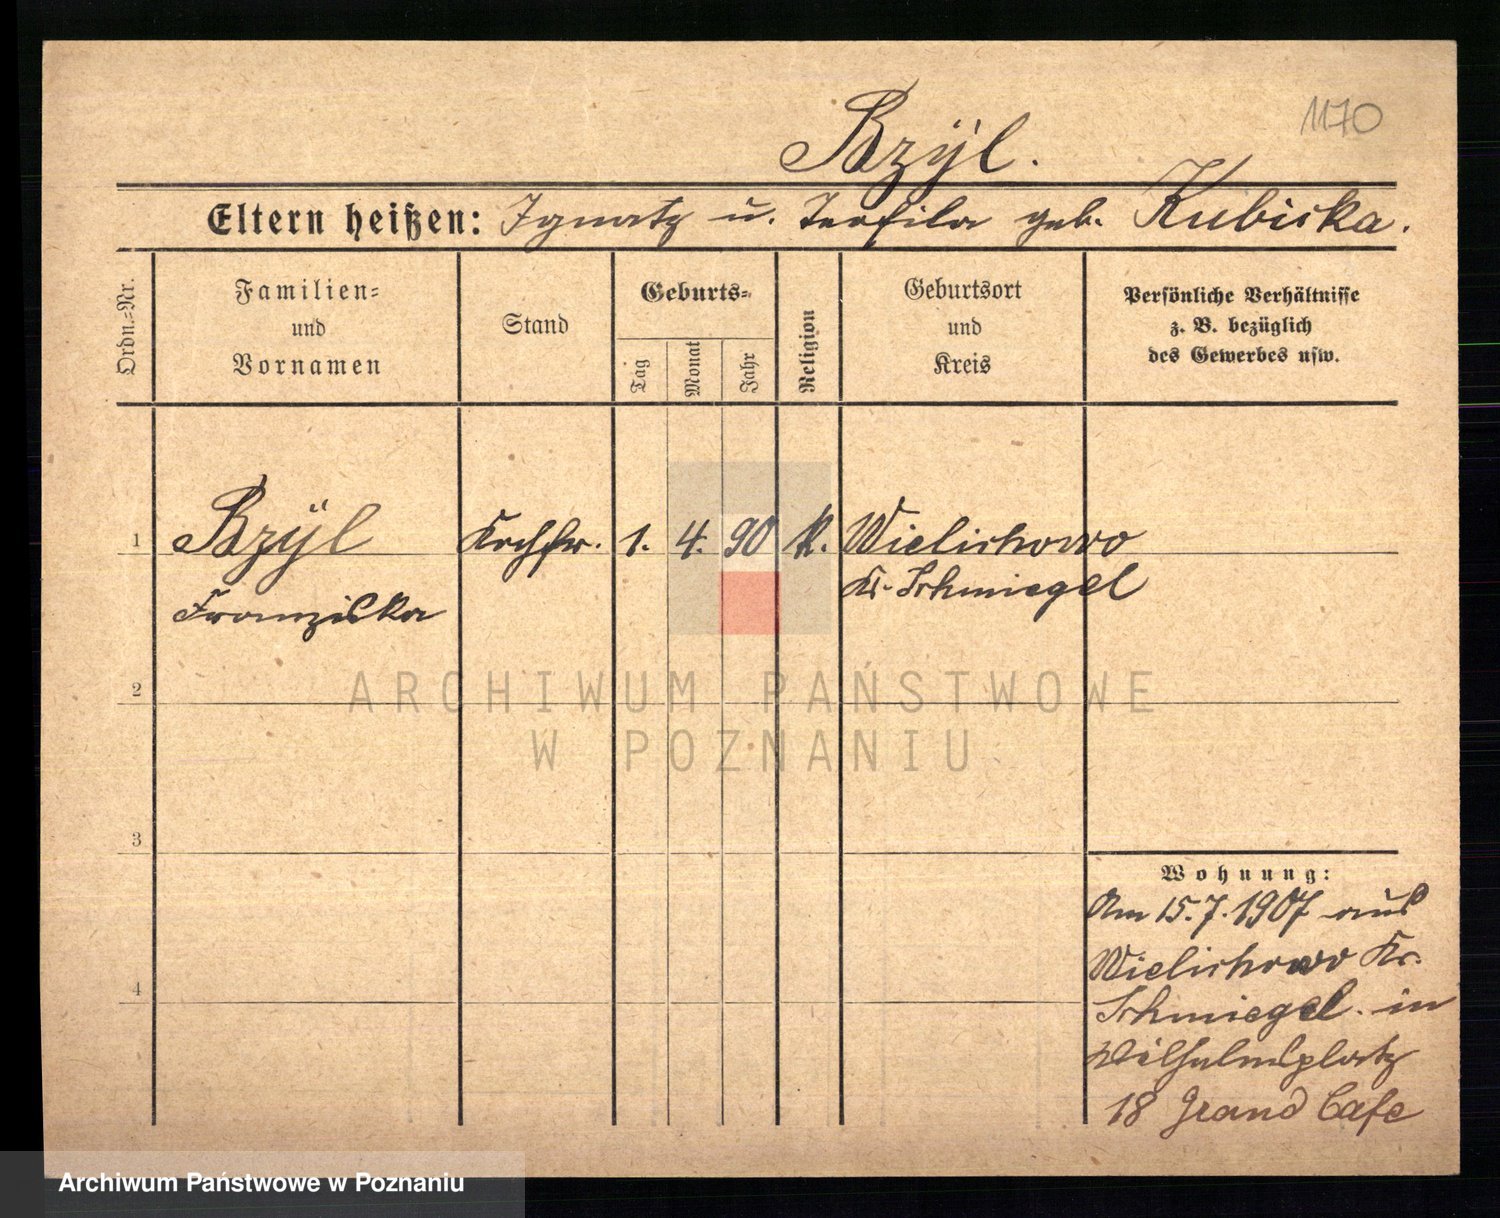 1170
Bzÿl.
Eltern heißen: Ignatz u. Teofila geb. Kubicka.
Ordn.-Nr.
Familien-
und
Vornamen
Stand
Geburts-
Tag
Monat
Jahr
Religion
Geburtsort
und
Kreis
Persönliche Verhältnisse
z. B. bezüglich
des Gewerbes usw.
1 Bzÿl 1. 4. 90 k. Wielichowo
Franziska Kr. Schmiegel
2
ARCHIWUM PAŃSTWOWE
W POZNANIU
3
4
Wohnung:
Am 15.7.1907 aus
Wielichowo Kr.
Schmiegel. in
Wilhelmsplatz
18 Grand Cafe
Archiwum Państwowe w Poznaniu